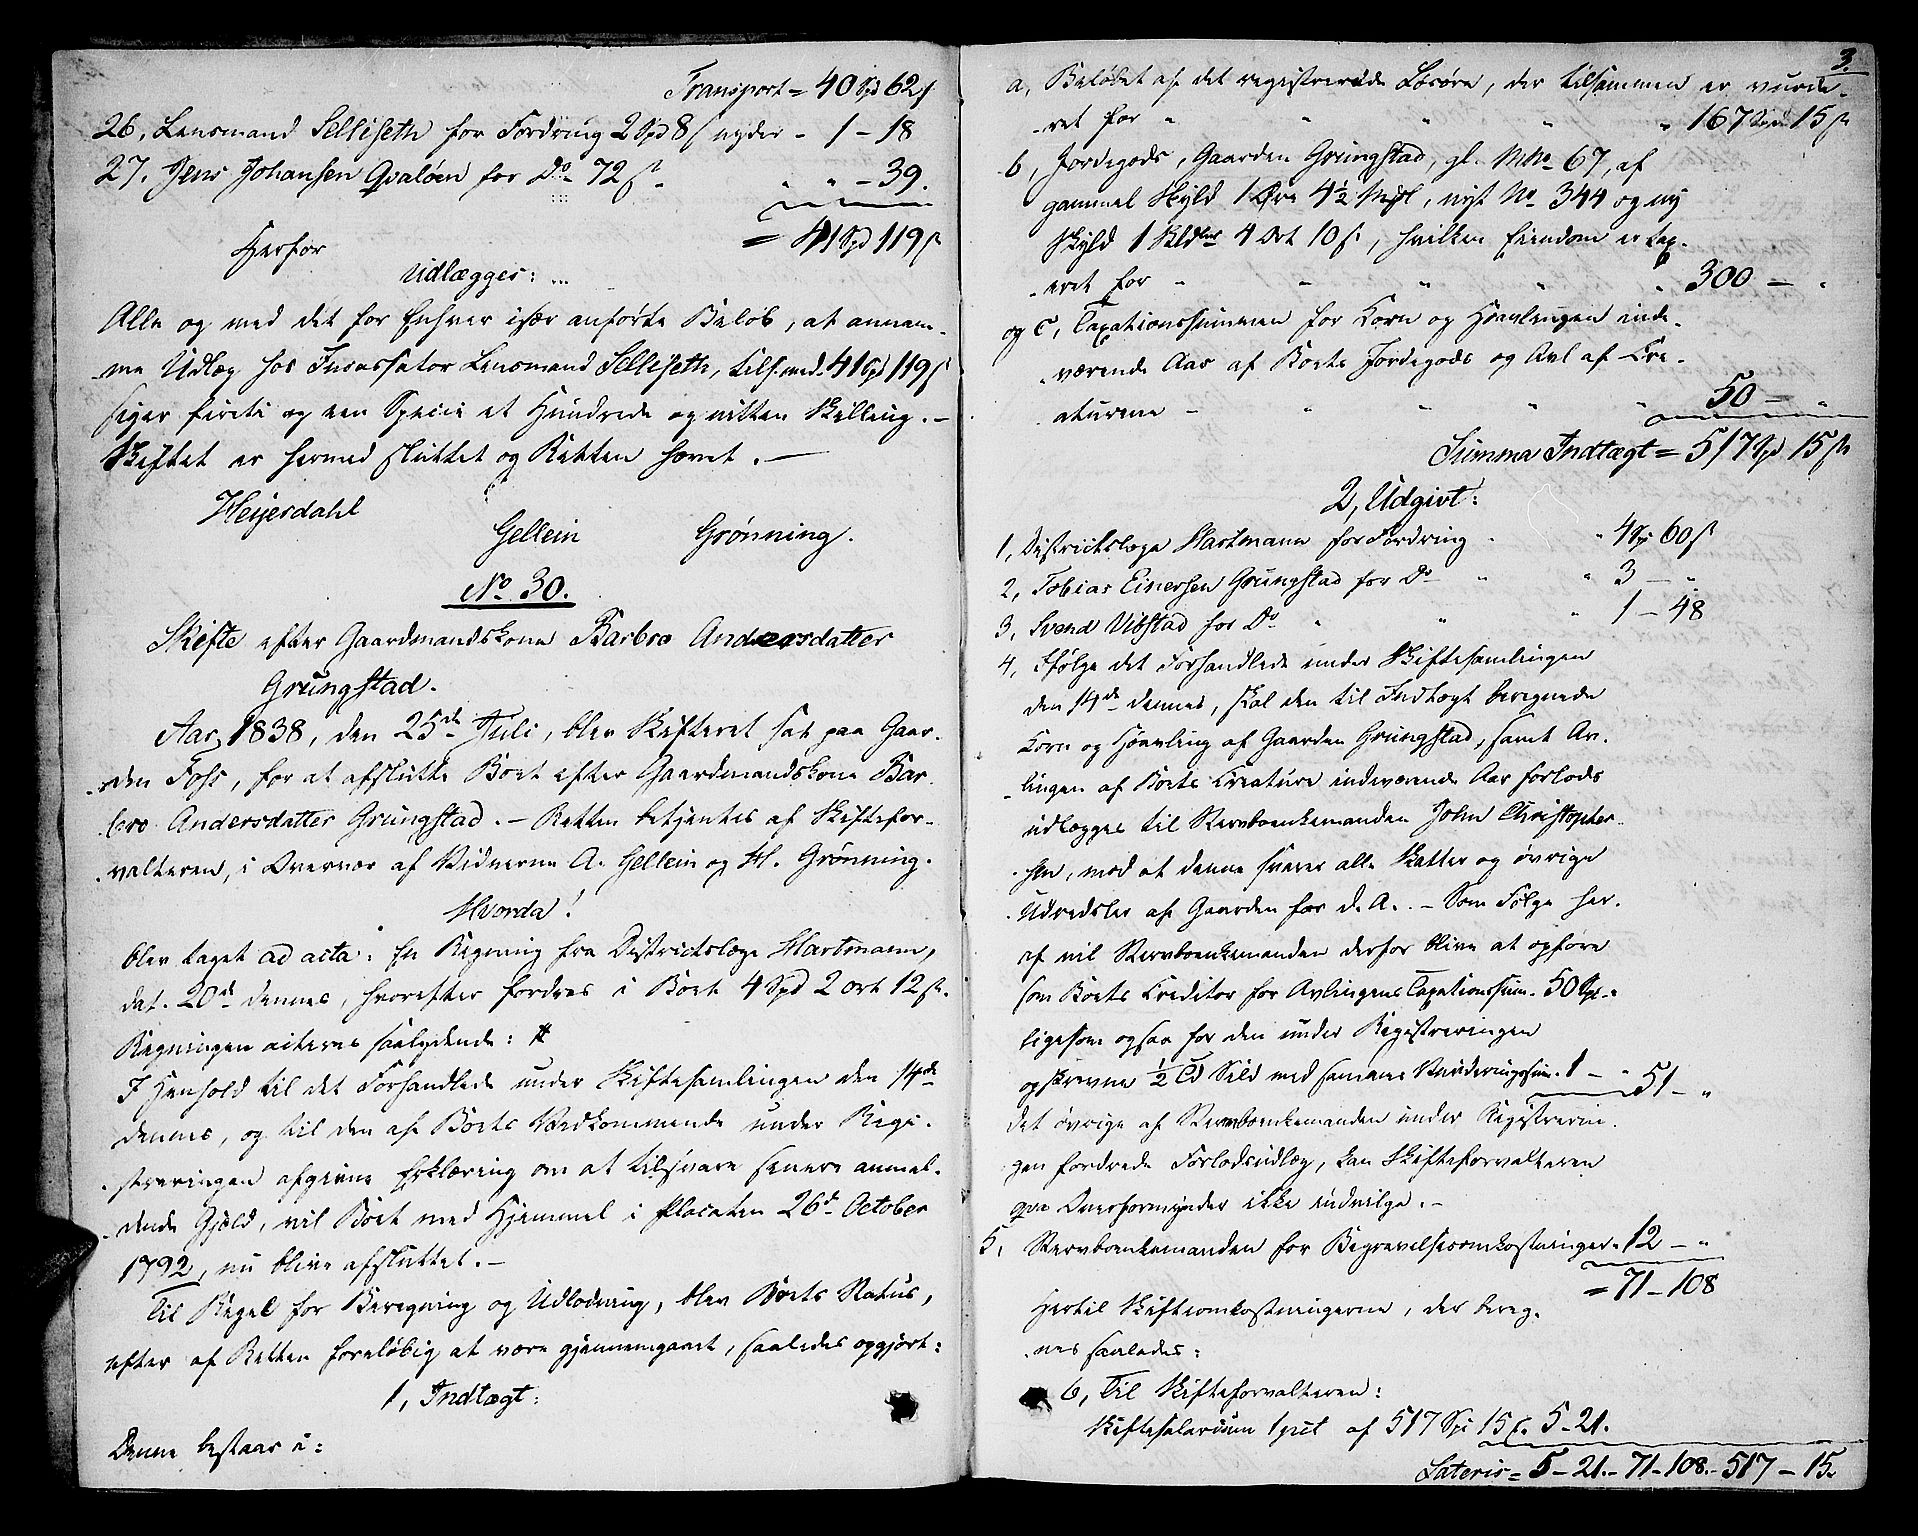 Transport = 40 Spd 62 s
26, Lensmand Selliseth for Fordring 2 Spd 8 s nyder - 1 - 18
27. Jens Johansen Qvaløen for Do 72 s - " " - 39.
= 41 Spd 119 s
Herfor
Udlægges: ...
Alle og med det for Enhver især anførte Beløb, at annam-
-me Udlæg hos Incassator Lensmand Sellisæth, tils. med 41 Spd 119 s
siger firti og een Specie et Hundrede og nitten Skilling. -
Skiftet er hermed sluttet og Retten hævet. -
Heyerdahl
Gellein Grønning.
No 30.
Skifte efter Gaardmandskone Barbro Andersdatter
Grungstad.
Aar, 1838, den 25de Juli, blev Skifteret sat paa Gaar-
-den Foss, for at afslutte Boet efter Gaardmandskone Bar-
-bro Andersdatter Grungstad. - Retten betjentes af Skiftefor-
-valteren, i Overvær af Vidnerne A. Gellein og H. Grønning.
Hvorda!
blev taget ad acta: En Regning fra Districtslæge Hartmann,
dat. 20de dennes, hvorefter fordres i Boet 4 Spd 2 ort 12 s.
Regningen citeres saalydende: #
I Henhold til det Forhandlede under Skiftesamlingen den 14de
dennes, og til den af Boets Vedkommende under Regi-
-streringen afgivne Erklæring om at tilsvare senere anmel-
-dende Gjæld, vil Boet med Hjemmel i Placaten 26de October
1792, nu blive afsluttet. -
Til Regel for Beregning og Udlodning, blev Boets Status,
efter af Retten foreløbig at være gjennemgaaet, saaledes opgjort:
1, Indtægt:
Denne bestaar i:
3.
a, Beløbet af det registrerede Løsøre, der tilsammen er vurde-
-ret for " " " " " 167 Spd 15 s
b, Jordegods, Gaarden Grungstad, gl. MNo 67, af
gammel Skyld 1 Øre 4½ Mrkl, nyt No 344 og ny
Skyld 1 Skldlr 4 Ort 10 s, hvilken Eiendom er tax-
-eret for " " " " " 300 - "
og c, Taxationssummen for Korn og Høavlingen inde-
-værende Aar af Boets Jordegods og Avl af Cre-
-aturene - " " " " 50 - "
Summa Indtægt = 517 Spd 15 s
2, Udgivt:
1, Districtslæge Hartmann for Fordring " " 4 Sp 60 s
2, Tobias Einersen Grungstad for Do " " 3 - "
3, Svend Vibstad for Do " " " 1 - 48
4, Ifølge det Forhandlede under Skiftesamlingen
den 14de dennes, skal den til Indtægt beregnede
Korn og Høavling af Gaarden Grungstad, samt Av-
-lingen af Boets Creature indeværende Aar forlods
udlægges til Stervboenkemanden John Christopher-
-sen, mod at denne svarer alle Skatter og øvrige
Udredsler af Gaarden for d. A. - Som Følge her-
af vil Stervboenkemanden derfor blive at opføre
som Boets Creditor for Avlingens Taxationssum. 50 Sp. "
ligesom ogsaa for den under Registreringen
opskrevne ½ Td Sild med sammes Vurderingssum. 1 - " 51 - "
det øvrige af Stervboenkemanden under Registrerin-
gen fordrede Forlodsudlæg, kan Skifteforvalteren
qva Overformynder ikke indvilge. -
5, Stervboenkemanden for Begravelsesomkostninger - 12 - "
= 71 - 108
Hertil Skifteomkostningerne, der bereg-
-nes saaledes:
6, Til Skifteforvalteren:
Skiftesalarium 1 pct af 517 Spd 15 s. 5 - 21.
Lateris = 5 - 21. - 71 - 108. - 517 - 15.